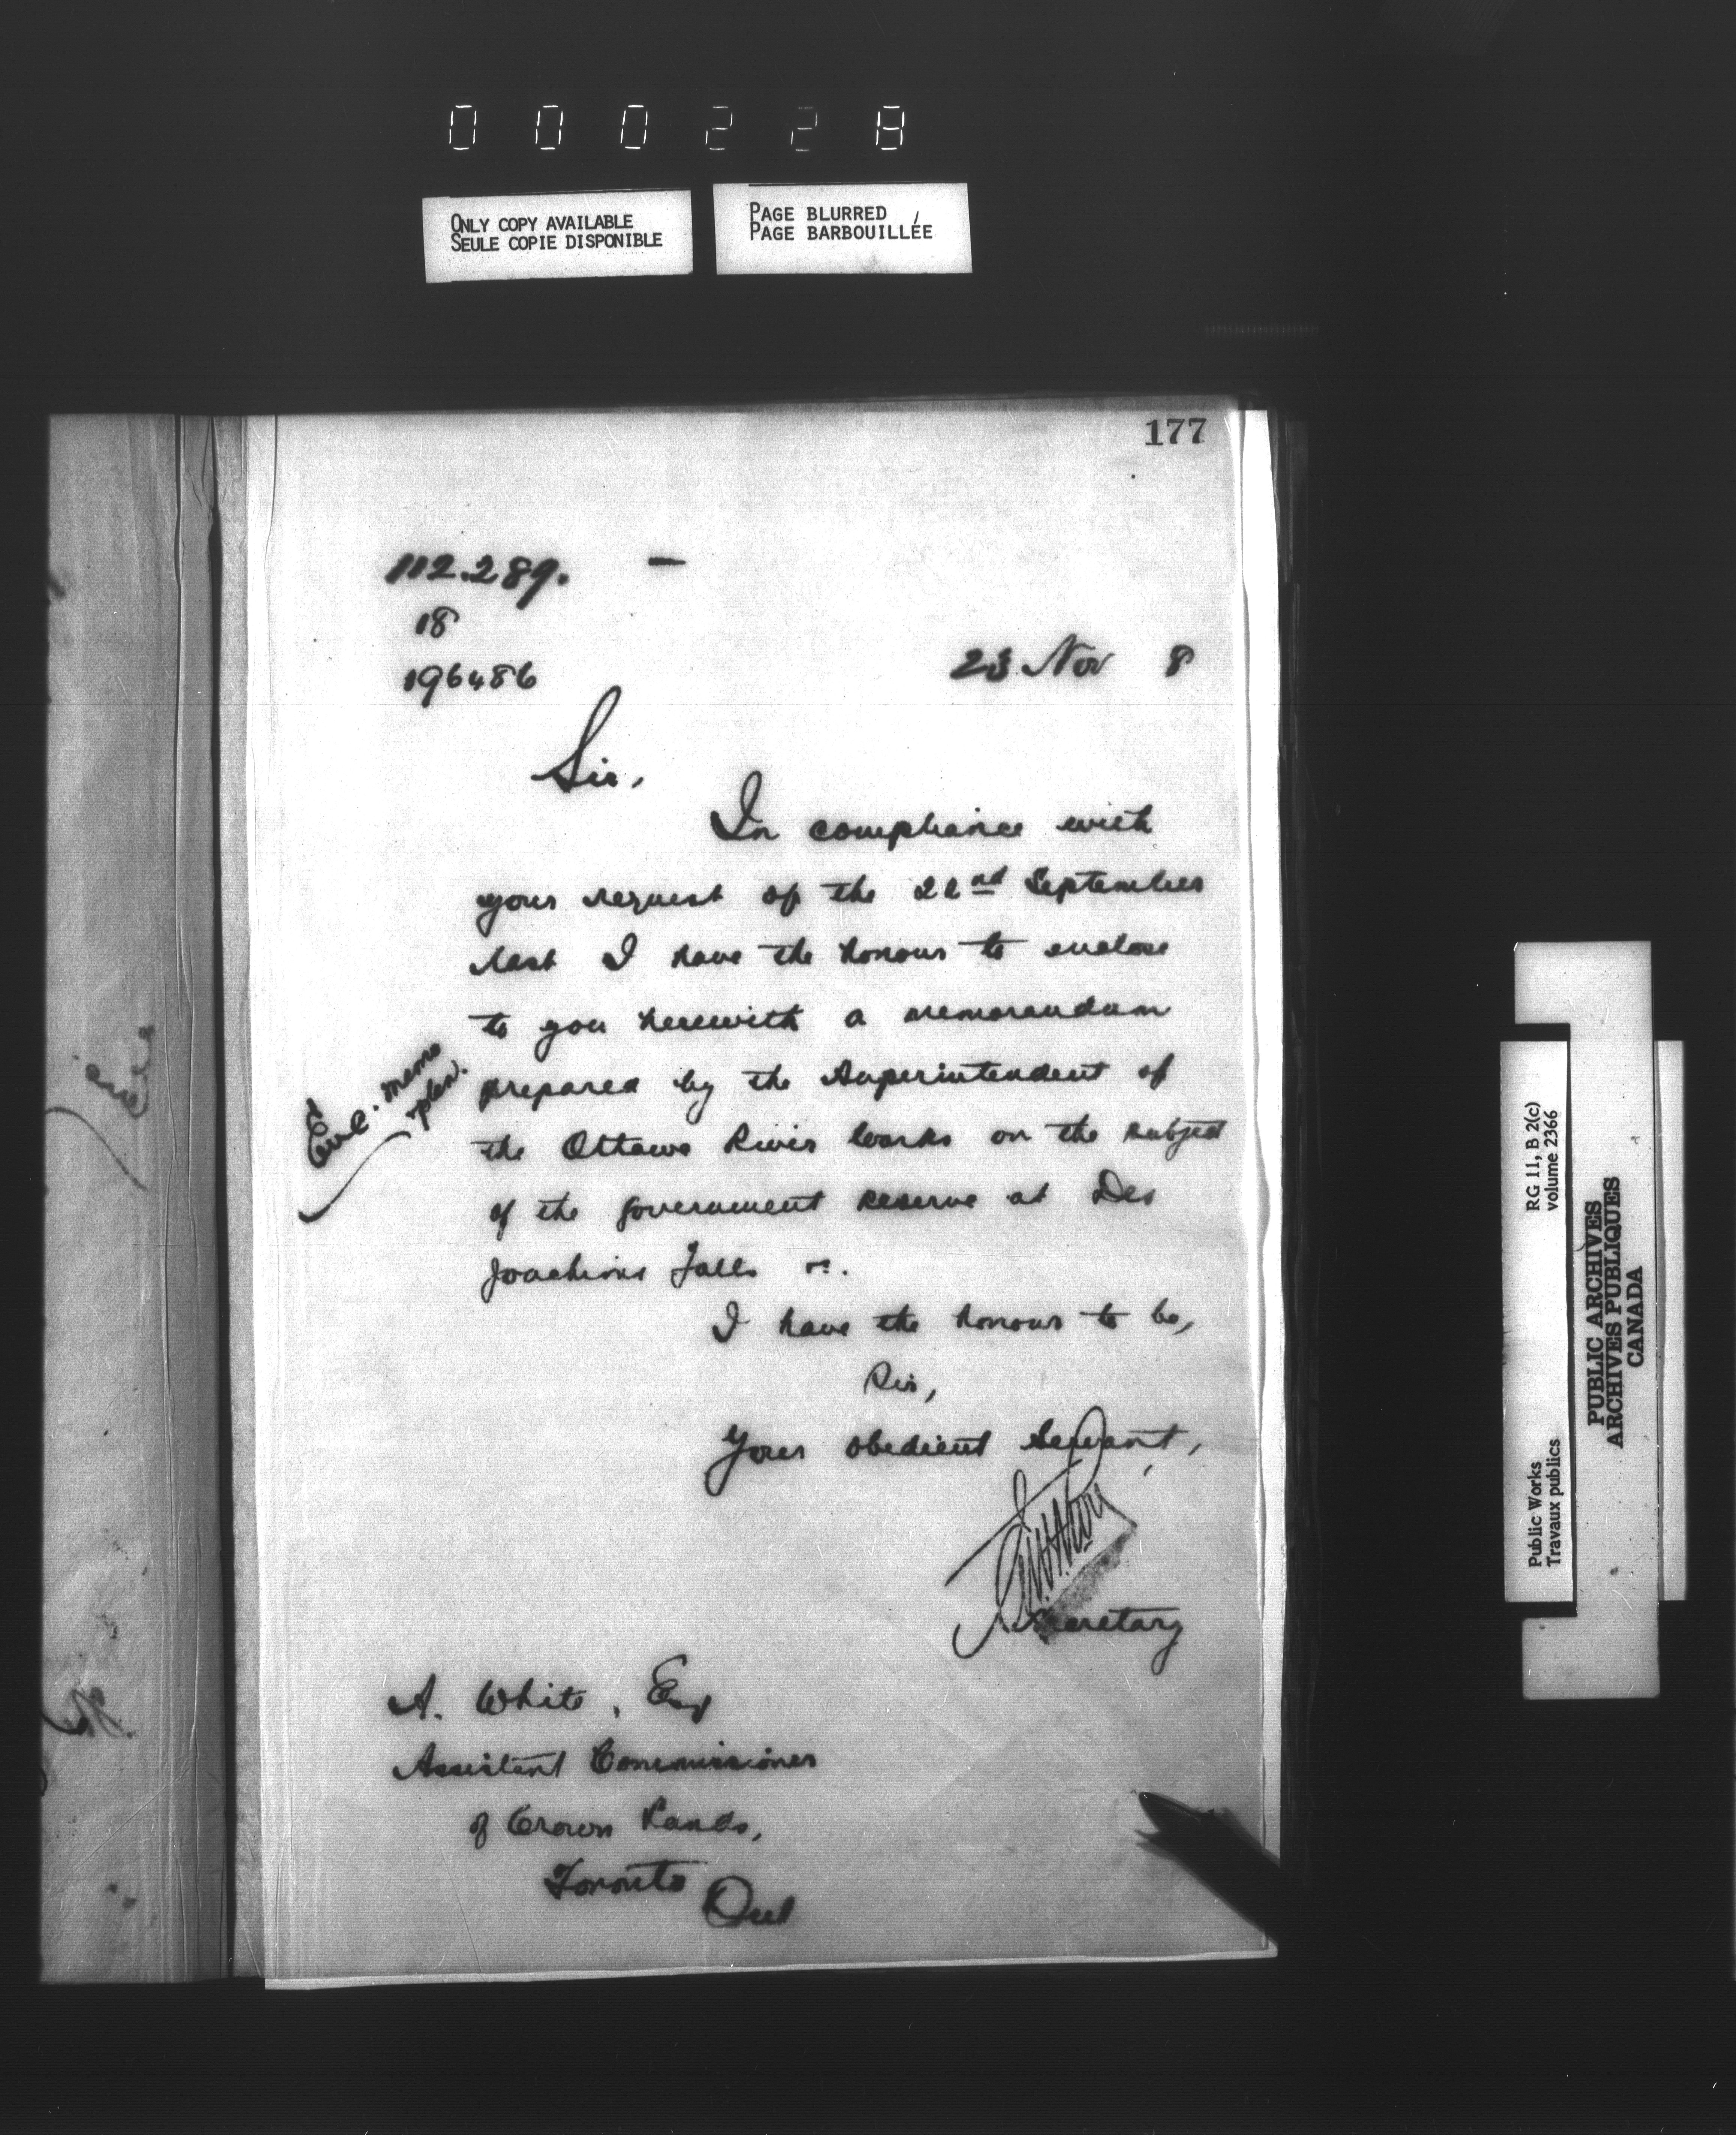 000228
ONLY COPY AVAILABLE
SEULE COPIE DISPONIBLE
PAGE BLURRED
PAGE BARBOUILLÉE
177
112.289. —
18
196486
23 Nov 8
Sir,
In compliance with
your request of the 22nd September
last I have the honour to enclose
to you herewith a memorandum
prepared by the Superintendent of
the Ottawa River Works on the subject
of the government reserve at Des
Joachims Falls
Encl. memo
plan.
I have the honour to be,
Sir,
Your obedient Servant,
Secretary
A. White, Esq
Assistant Commissioner
of Crown Lands,
Toronto
Ont
RG 11, B 2(c)
volume 2366
Public Works
Travaux publics
PUBLIC ARCHIVES
ARCHIVES PUBLIQUES
CANADA